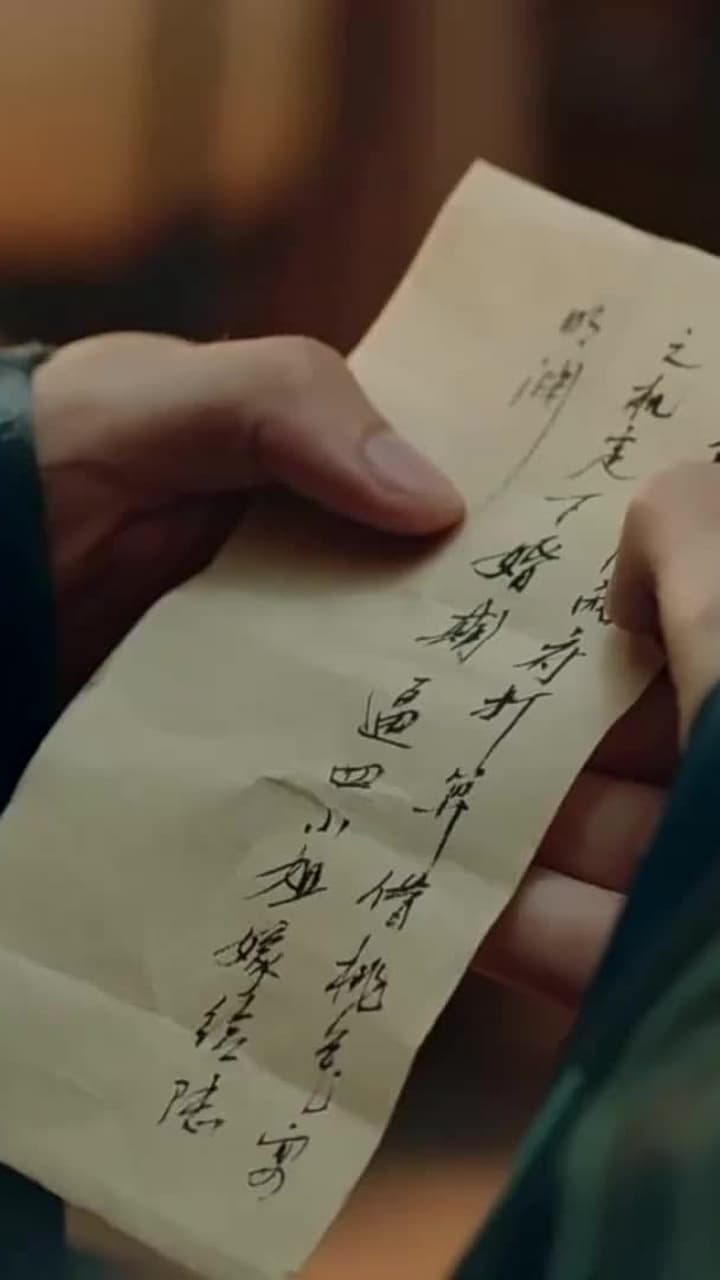 府打算借桃花宴
之机定下婚期逼四小姐嫁给陆
明渊